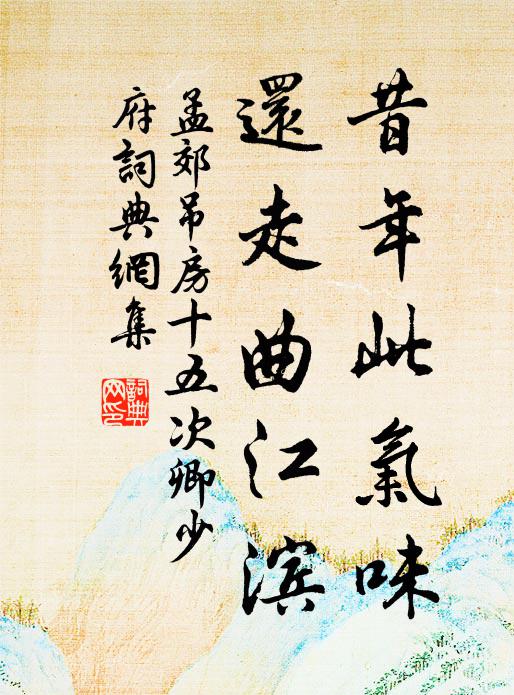 昔年此氣味
還走曲江滨
孟郊吊房十五次卿少
府詞典網集
詞典
网印